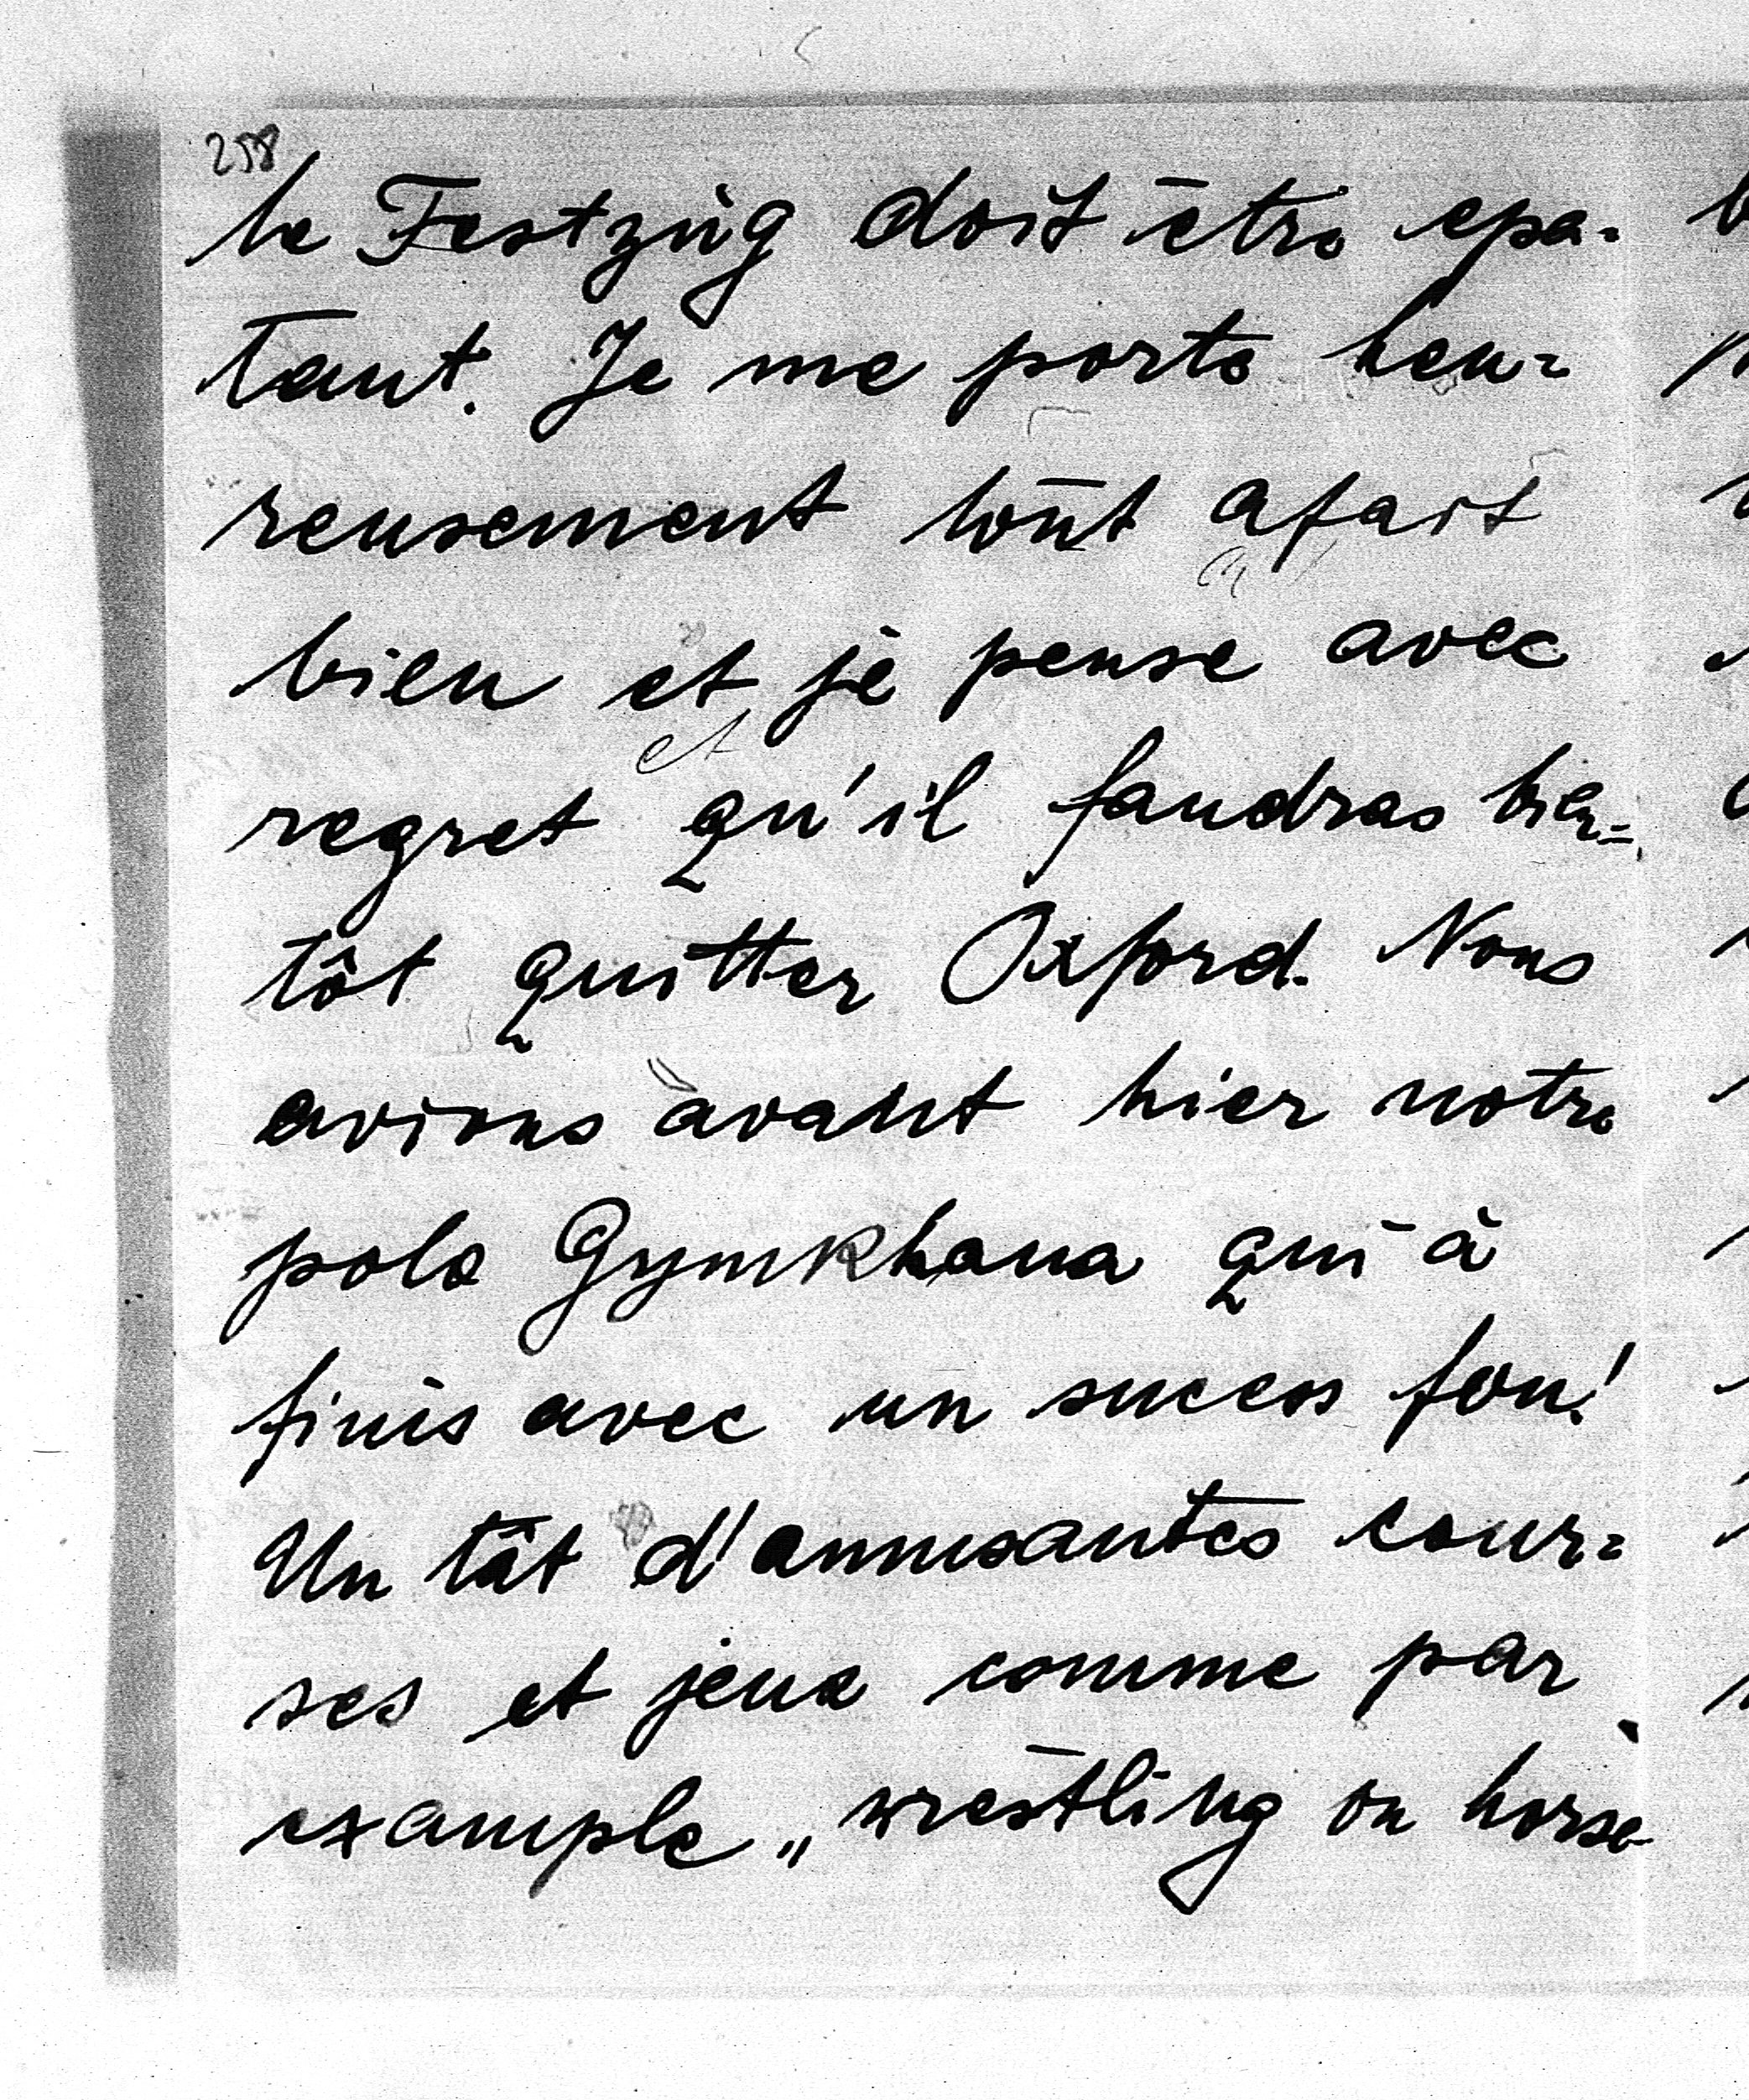 258
le Festzug doit être epa-
tant. Je me porte heu=
reusement tout afait
bien et je pense avec
regret qu'il faudras bien=
tôt quitter Oxford. Nous
avions avant hier notre
polo Gymkhana qui à
finis avec un succes fou!
Un tât d'annusantes cour=
ses et jeux comme par
example „wrestling on horse